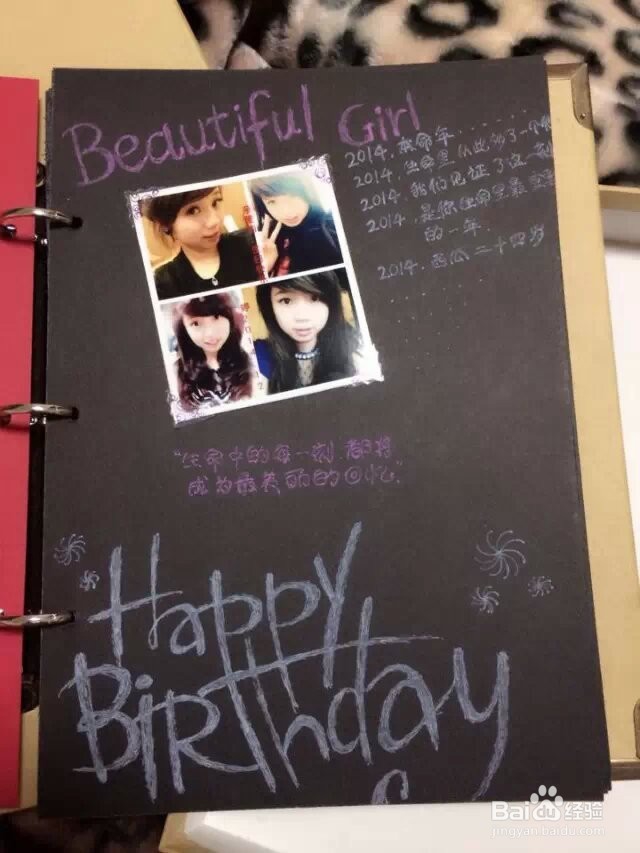 Beautiful Girl
2014.本命年.......
2014.生命里从此多了一个
2014.我们见证了这一刻
2014.是你生命里最重要
的一年.
2014.西瓜二十四岁
"生命中的每一刻.都将
成为最美丽的回忆."
Happy
Birthday
Bai 经验
jingyan.baidu.com